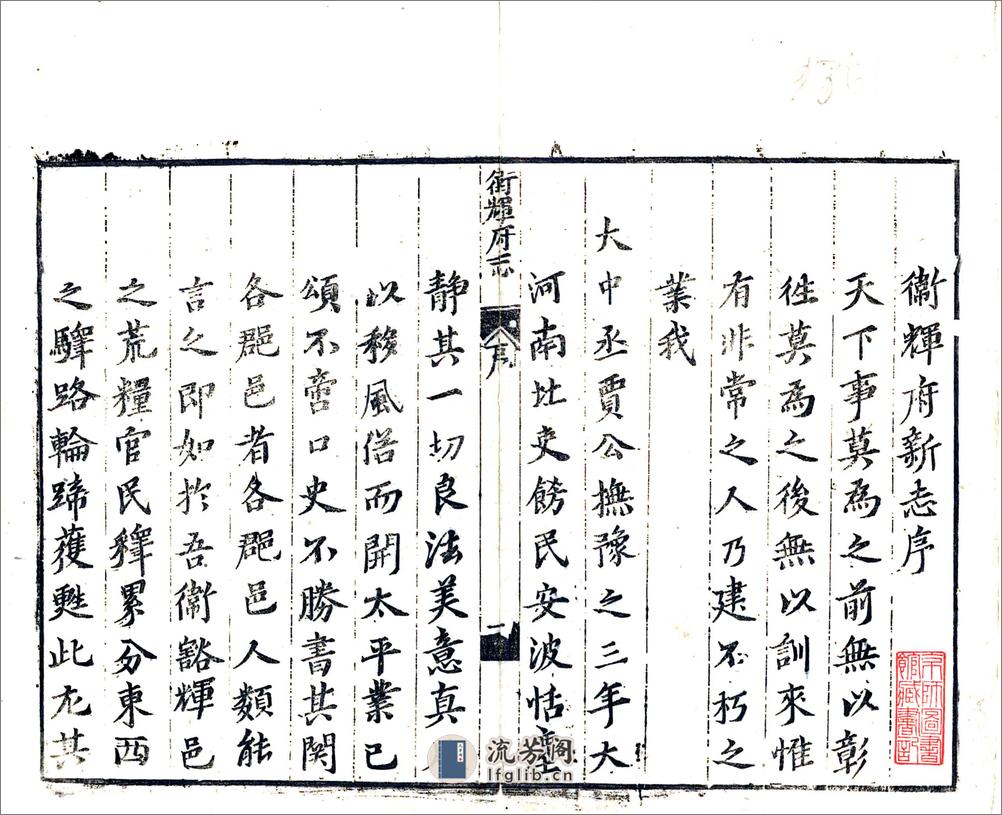 衞輝府新志序
天下事莫為之前無以彰
徃莫為之後無以訓來惟
有非常之人乃建不朽之
業我
大中丞賈公撫豫之三年大
河南北吏餝民安波恬
衛輝府志
序
一
靜其一切良法美意真
以移風俗而開太平業已
頌不啻口史不勝書其関
各郡邑者各郡邑人類能
言之即如扵吾衞豁輝邑
之荒糧官民釋累分東西
之驛路輪蹄獲甦此尤其
流芳閣
lfglib.cn
圖書
館藏書